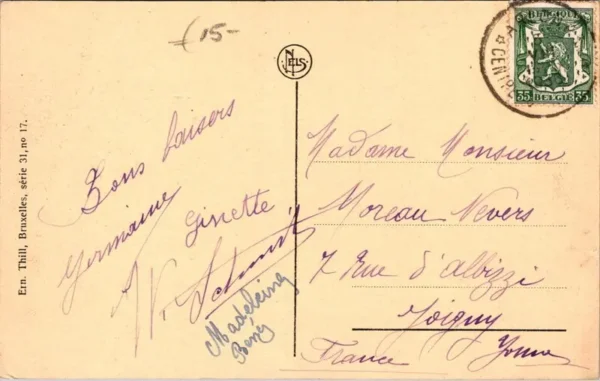 15-
NELS
BELGIQUE
35 BELGIË 35
CENTRE
Ern. Thill, Bruxelles, série 31, no 17.
Bons baisers
Germaine
Ginette
Madeleine
Madame Monsieur
Moreau Nevers
7 Rue d'Albizzi
Joigny
Yonne
France